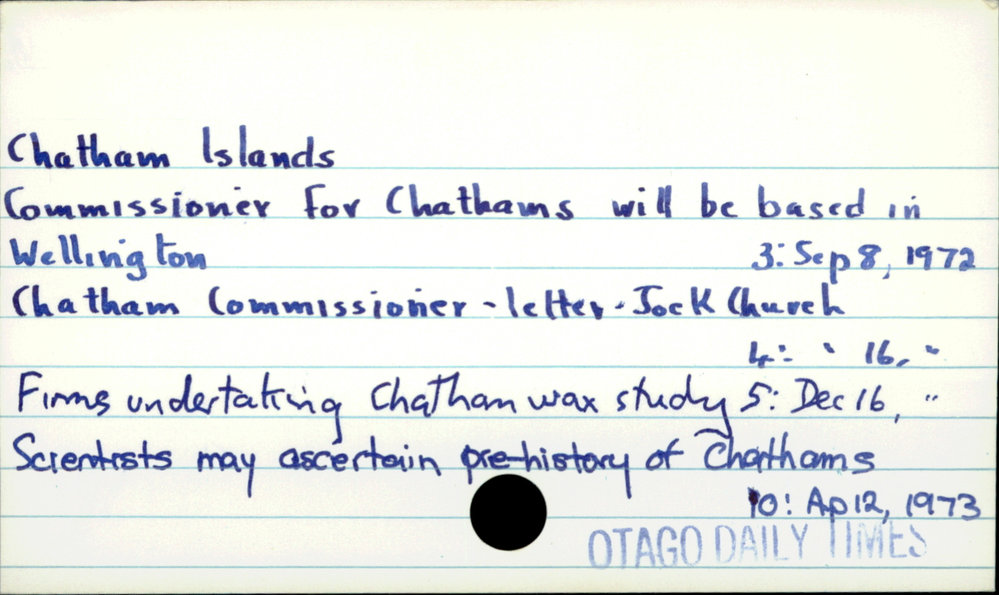 Chatham Islands
Commissioner for Chathams will be based in
Wellington 3: Sep 8, 1972
Chatham Commissioner - letter - Jock Church
4: " 16, "
Firms undertaking Chatham wax study 5: Dec 16, "
Scientists may ascertain pre-history of Chathams
10: Ap 12, 1973
OTAGO DAILY TIMES